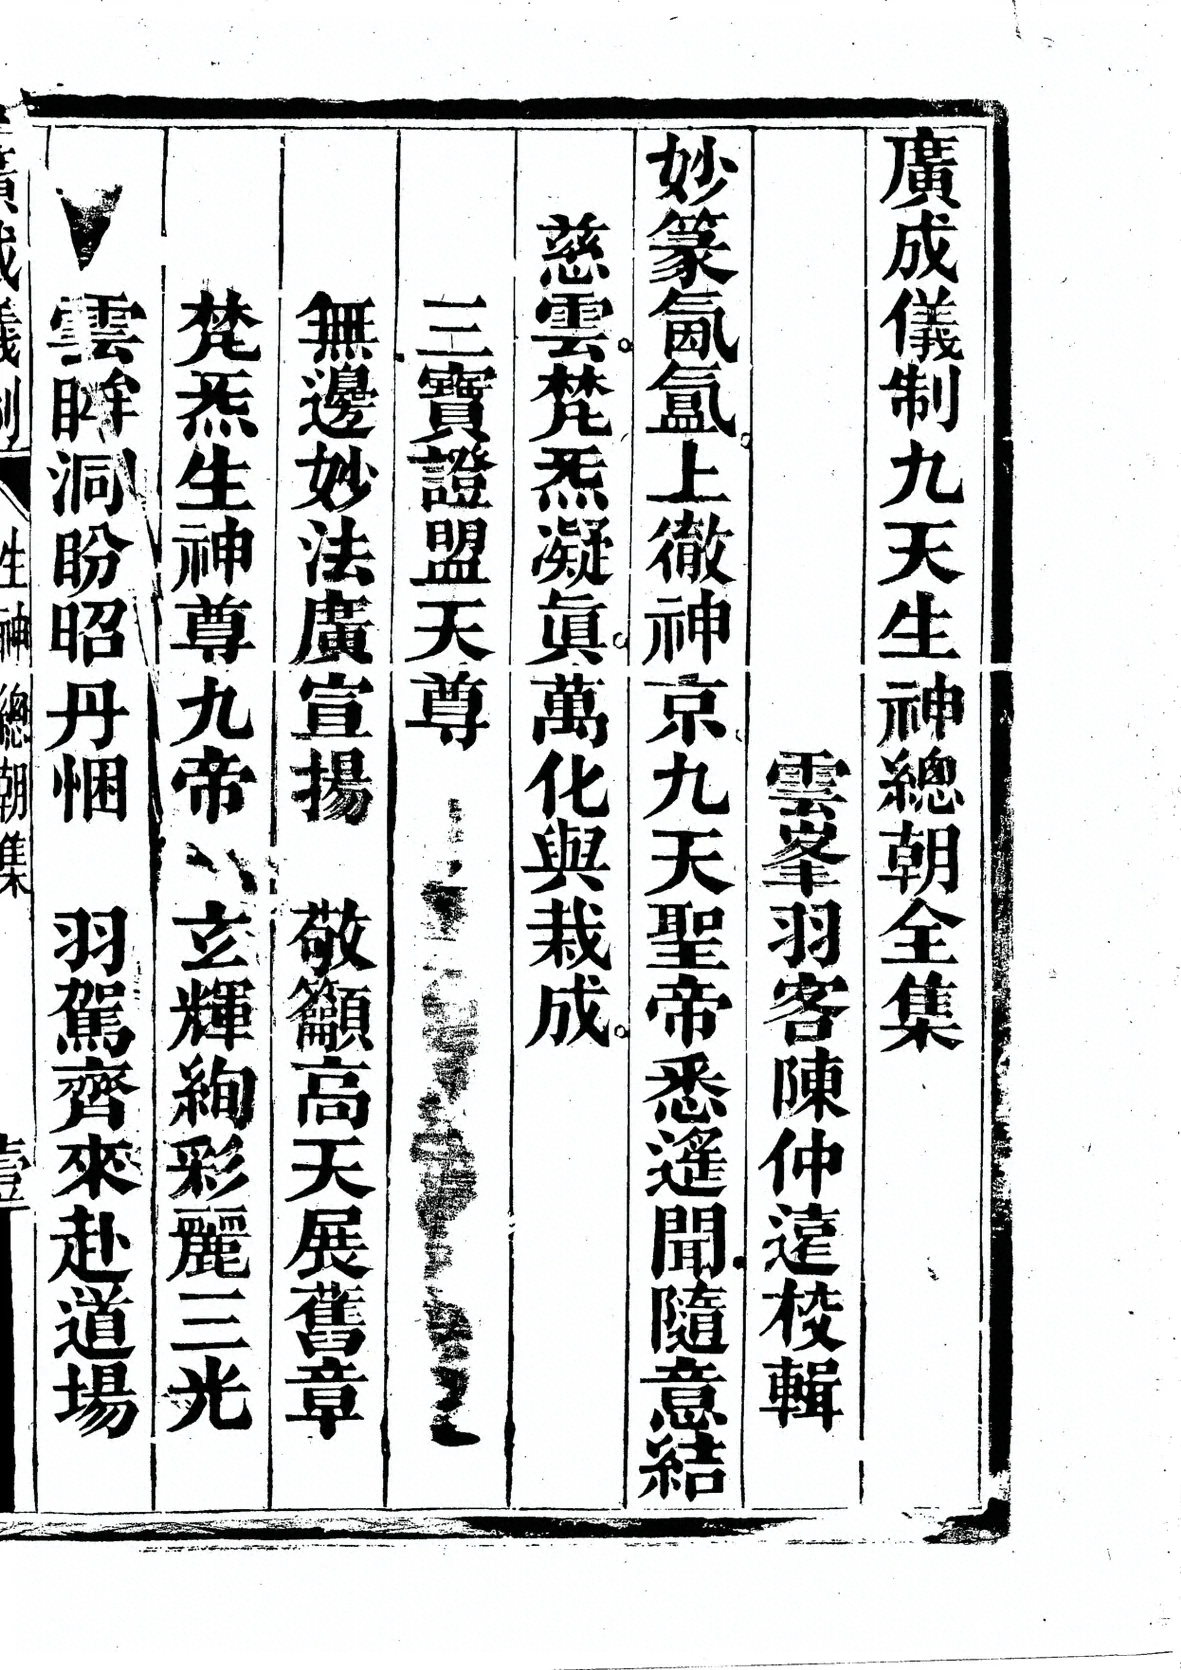 廣成儀制九天生神總朝全集
雲峯羽客陳仲遠校輯
妙篆氤氳上徹神京九天聖帝悉遙聞隨意結
慈雲梵炁凝眞萬化與栽成
三寶證盟天尊
無邊妙法廣宣揚　敬籲高天展舊章
梵炁生神尊九帝　玄輝絢彩麗三光
雲眸洞盼昭丹悃　羽駕齊來赴道場
廣成儀制　生神總朝集　壹